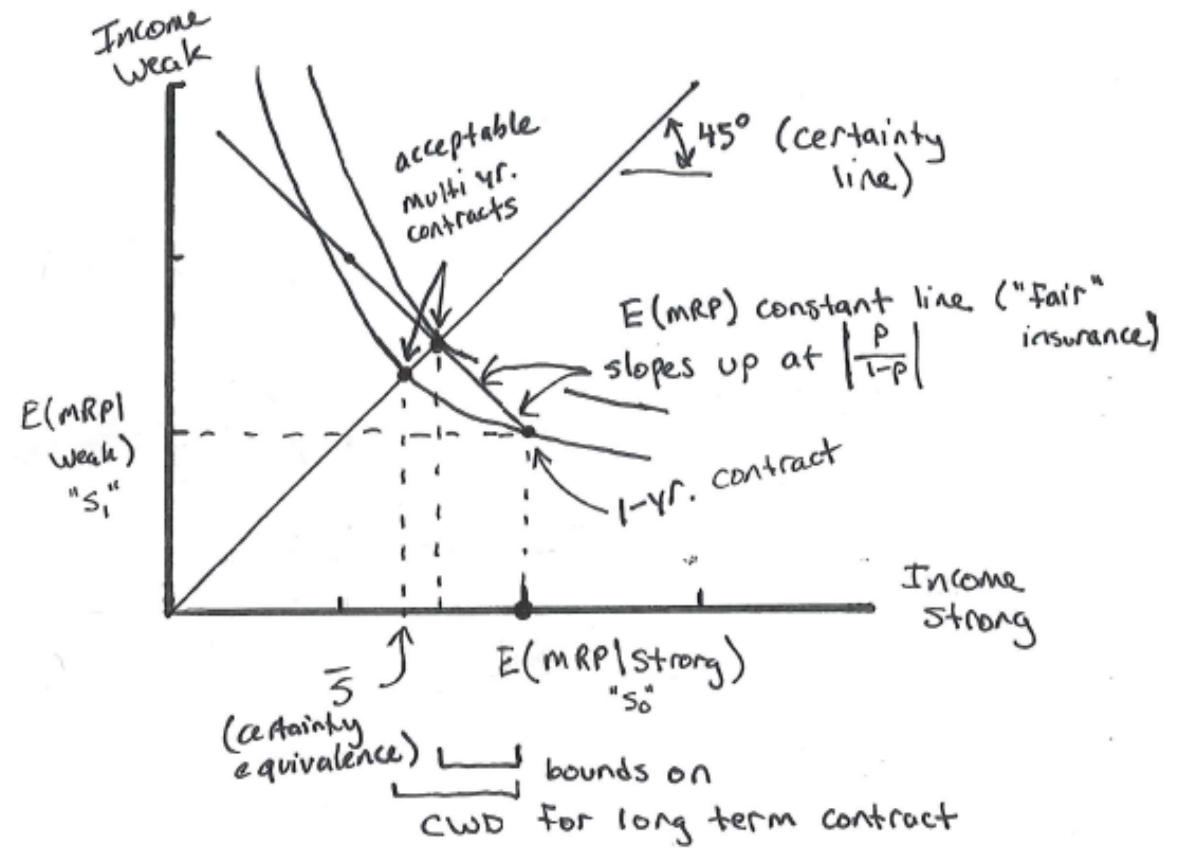 Income
Weak
acceptable
multi yr.
contracts
45° (certainty
line)
E(MRP) constant line ("fair"
insurance)
slopes up at |P/1-P|
E(MRP|
Weak)
"S₁"
1-yr. contract
Income
Strong
S̅
E(MRP|Strong)
"S₀"
(certainty
equivalence)
bounds on
CWD for long term contract